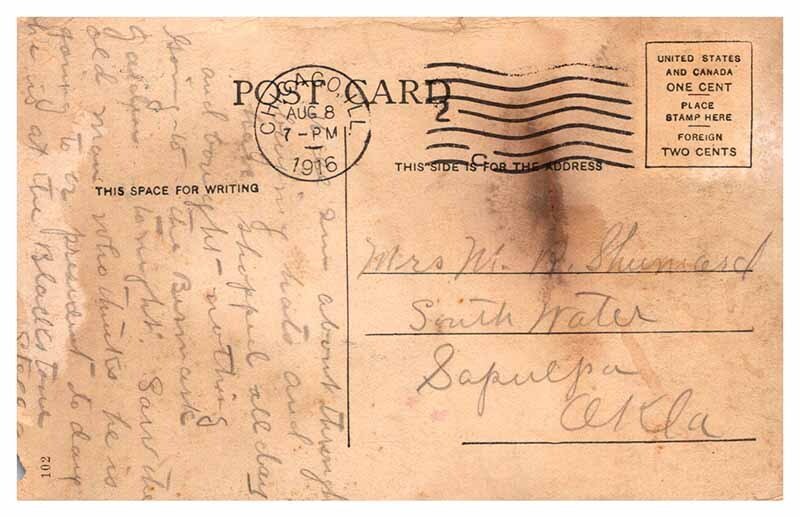 POST CARD
CHICAGO, ILL.
AUG 8
7-PM
1916
2
C
UNITED STATES
AND CANADA
ONE CENT
PLACE
STAMP HERE
FOREIGN
TWO CENTS
THIS SPACE FOR WRITING
THIS SIDE IS FOR THE ADDRESS
am about through
hats and
shopped all day
and bought - nothing
Going to the Bismark
Garden tonight. Saw the
old man who thinks he is
going to president to day
he is at the Blackstone
Mrs M. R. Shumard
South Water
Sapulpa
Okla
102